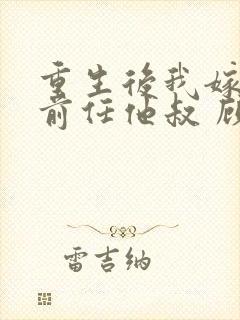 重生後我嫁
前任他叔 顧
雷吉纳